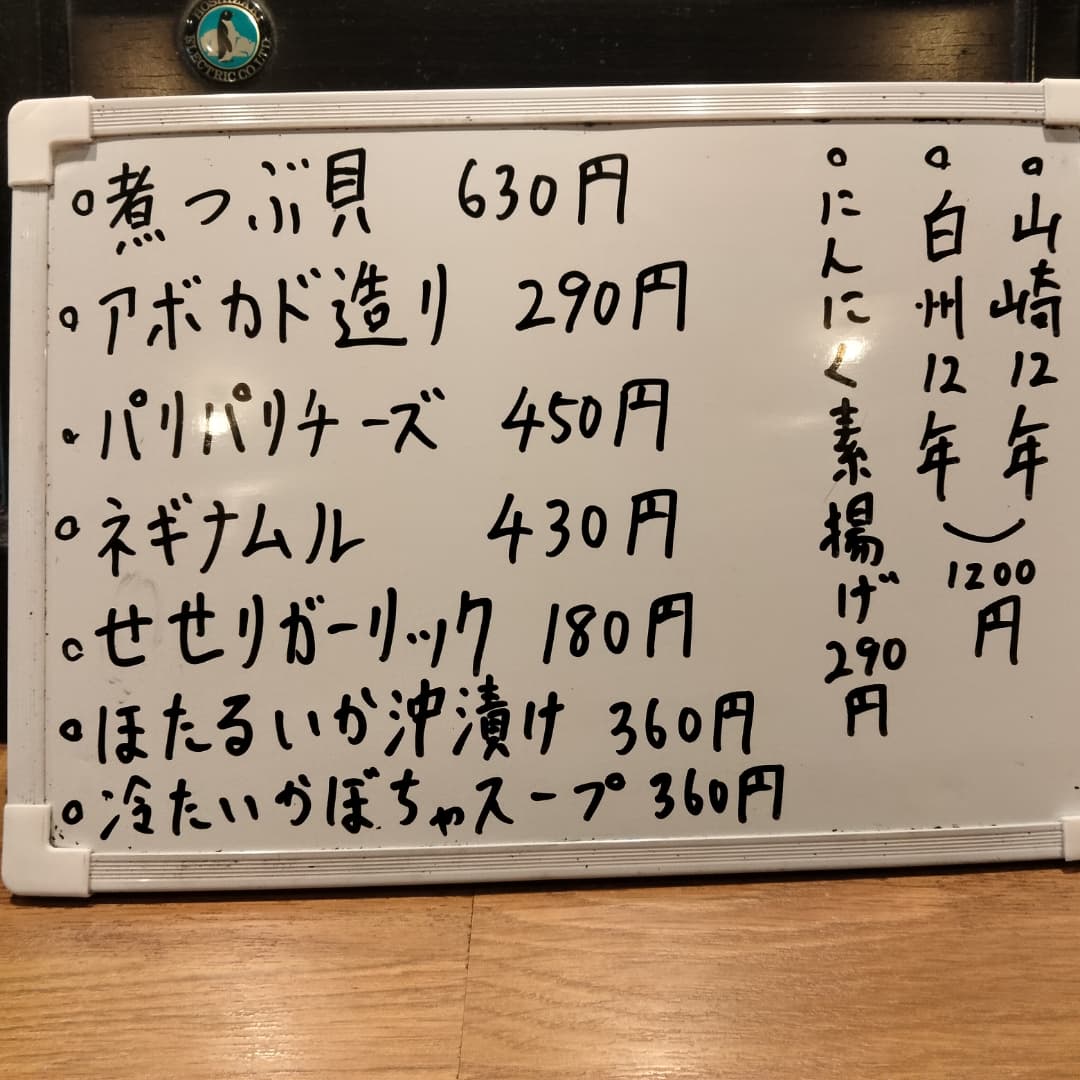 HOSHIZAKI
ELECTRIC CO., LTD.
山崎12年
白州12年
1200円
にんにく素揚げ290円
煮つぶ貝 630円
アボカド造り 290円
パリパリチーズ 450円
ネギナムル 430円
せせりガーリック 180円
ほたるいか沖漬け 360円
冷たいかぼちゃスープ 360円